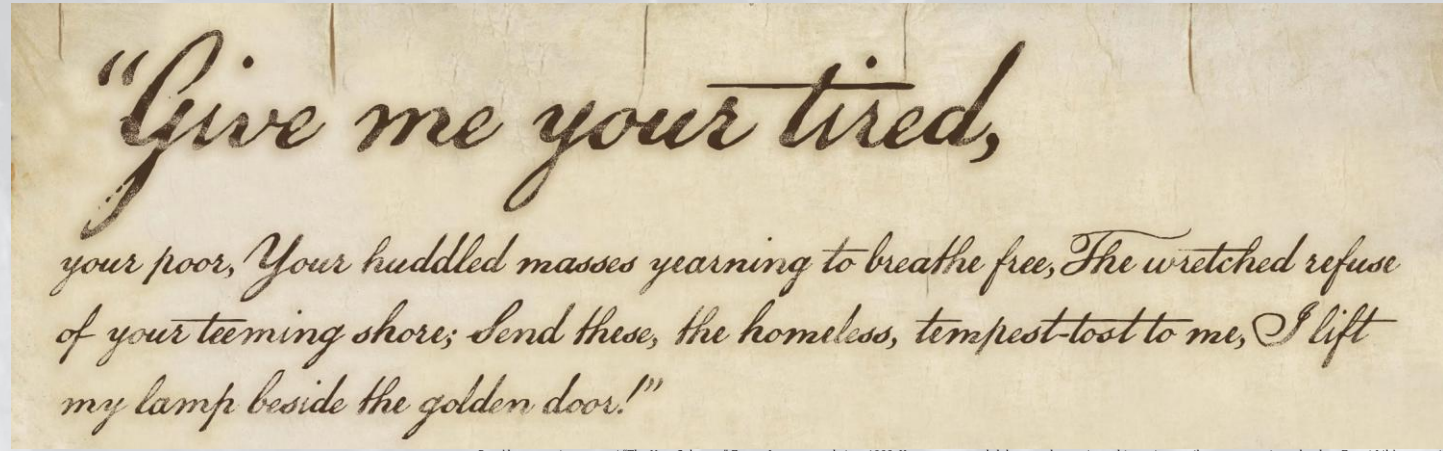 “Give me your tired,
your poor, Your huddled masses yearning to breathe free, The wretched refuse
of your teeming shore; Send these, the homeless, tempest-tost to me, I lift
my lamp beside the golden door!”